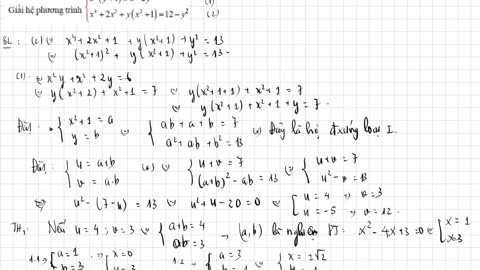 Giải hệ phương trình { (1)
x⁴ + 2x² + y(x²+1) = 12 - y² (2)
BL: (2) ⇔ x⁴ + 2x² + 1 + y(x²+1) + y² = 13
⇔ (x²+1)² + y(x²+1) + y² = 13.
(1): ⇔ x²y + x² + 2y = 6
⇔ y(x²+2) + x²+1 = 7 ⇔ y(x²+1+1) + x²+1 = 7
⇔ y(x²+1) + x²+1 + y = 7.
Đặt: { x²+1 = a ⇔ { ab+a+b = 7 (*) Đây là hệ đ.xứng loại I.
y = b a²+ab+b² = 13
Đặt: { u = a+b (*) ⇔ { u+v = 7 ⇔ { u+v = 7
v = a.b (a+b)² - ab = 13 u² - v = 13
⇒ u² - (7-u) = 13 ⇔ u² + u - 20 = 0 ⇔ [ u = 4 ⇒ v = 3
u = -5 ⇒ v = 12.
TH₁: Nếu u = 4; v = 3 ⇒ { a+b = 4 ⇒ (a,b) là nghiệm PT: x² - 4x + 3 = 0 ⇔ [ x = 1
ab = 3 x = 3
1.1 ⇒ { a = 1 ⇒ { x = 0 1.2 { a = 3 ⇔ { x = ±√2
b = 3